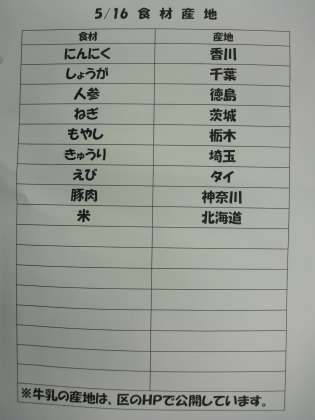 5/16 食材産地
食材 産地
にんにく 香川
しょうが 千葉
人参 徳島
ねぎ 茨城
もやし 栃木
きゅうり 埼玉
えび タイ
豚肉 神奈川
米 北海道
※牛乳の産地は、区のHPで公開しています。